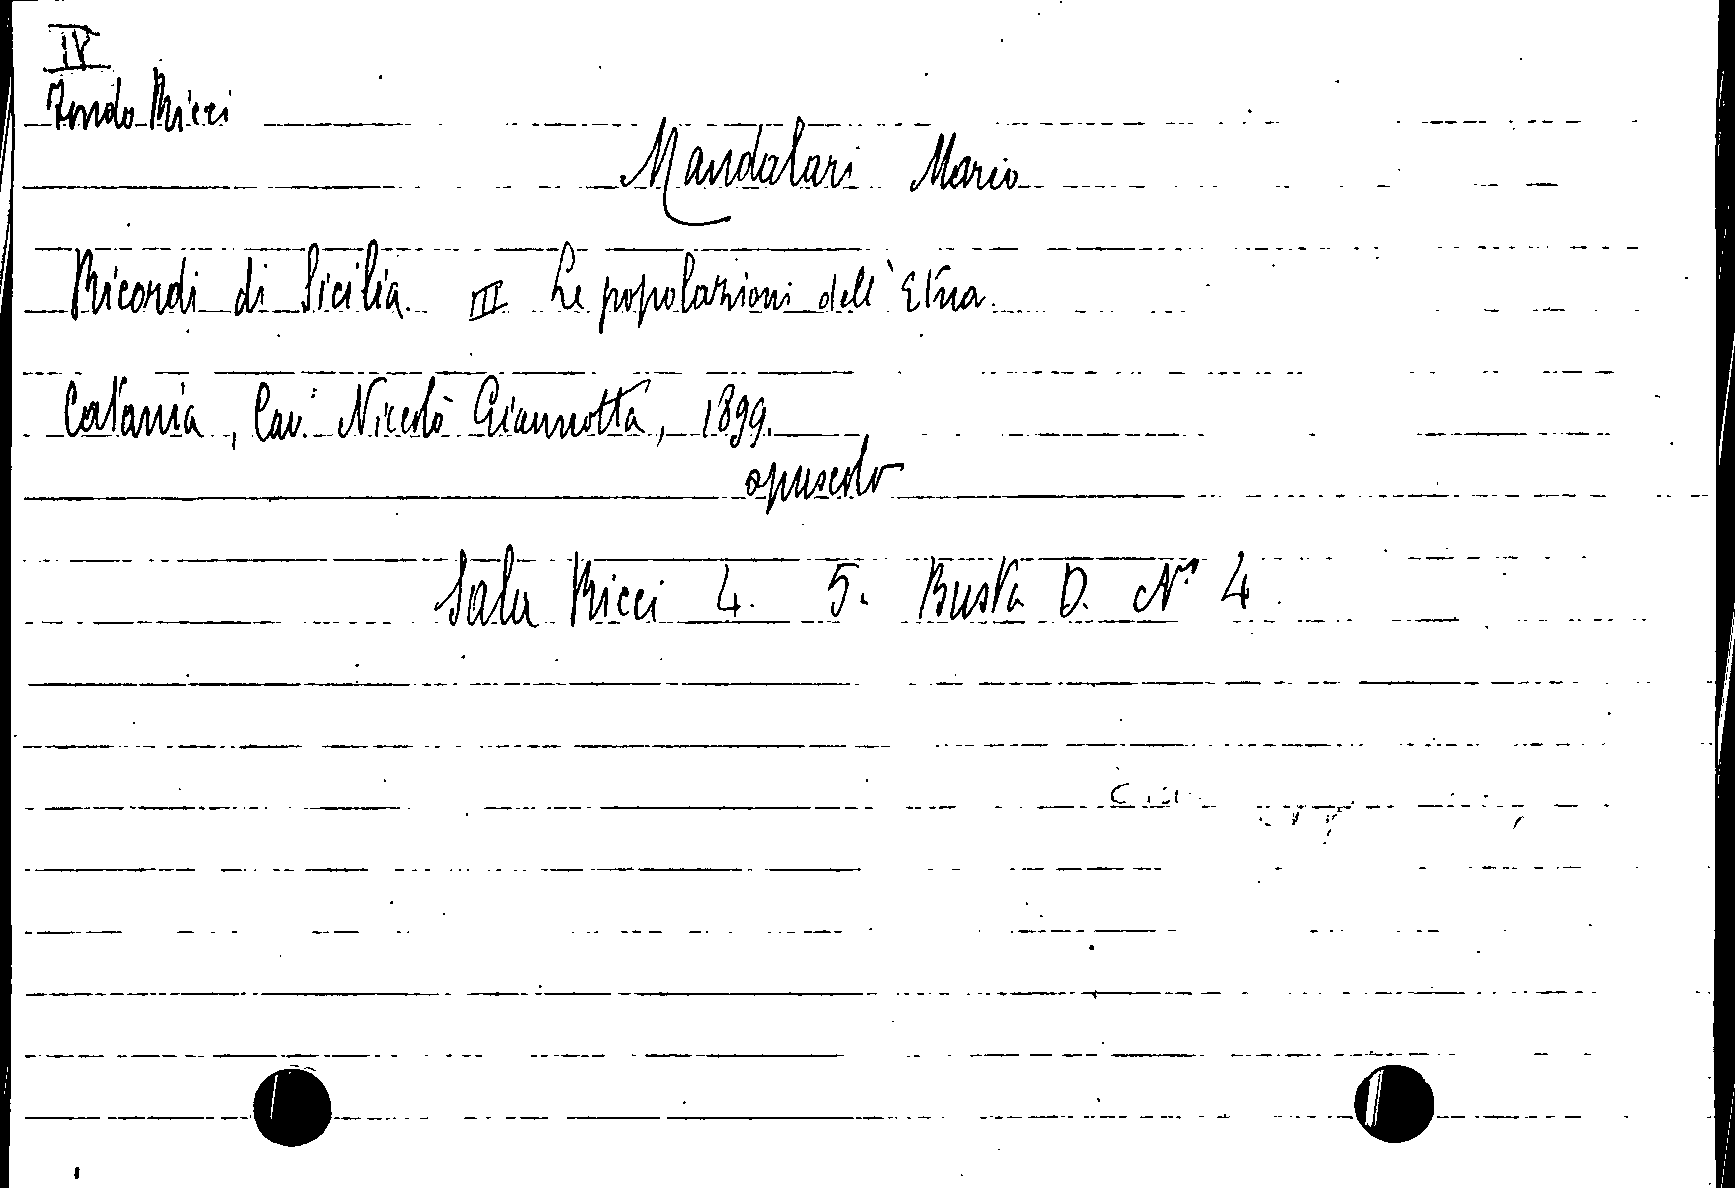 IV
Fondo Ricci
Mandalari Mario
Ricordi di Sicilia. III Le popolazioni dell'Etna.
Catania, Cav. Nicolò Giannotta, 1899.
opuscolo
Sala Ricci 4. 5. Busta D. N° 4.